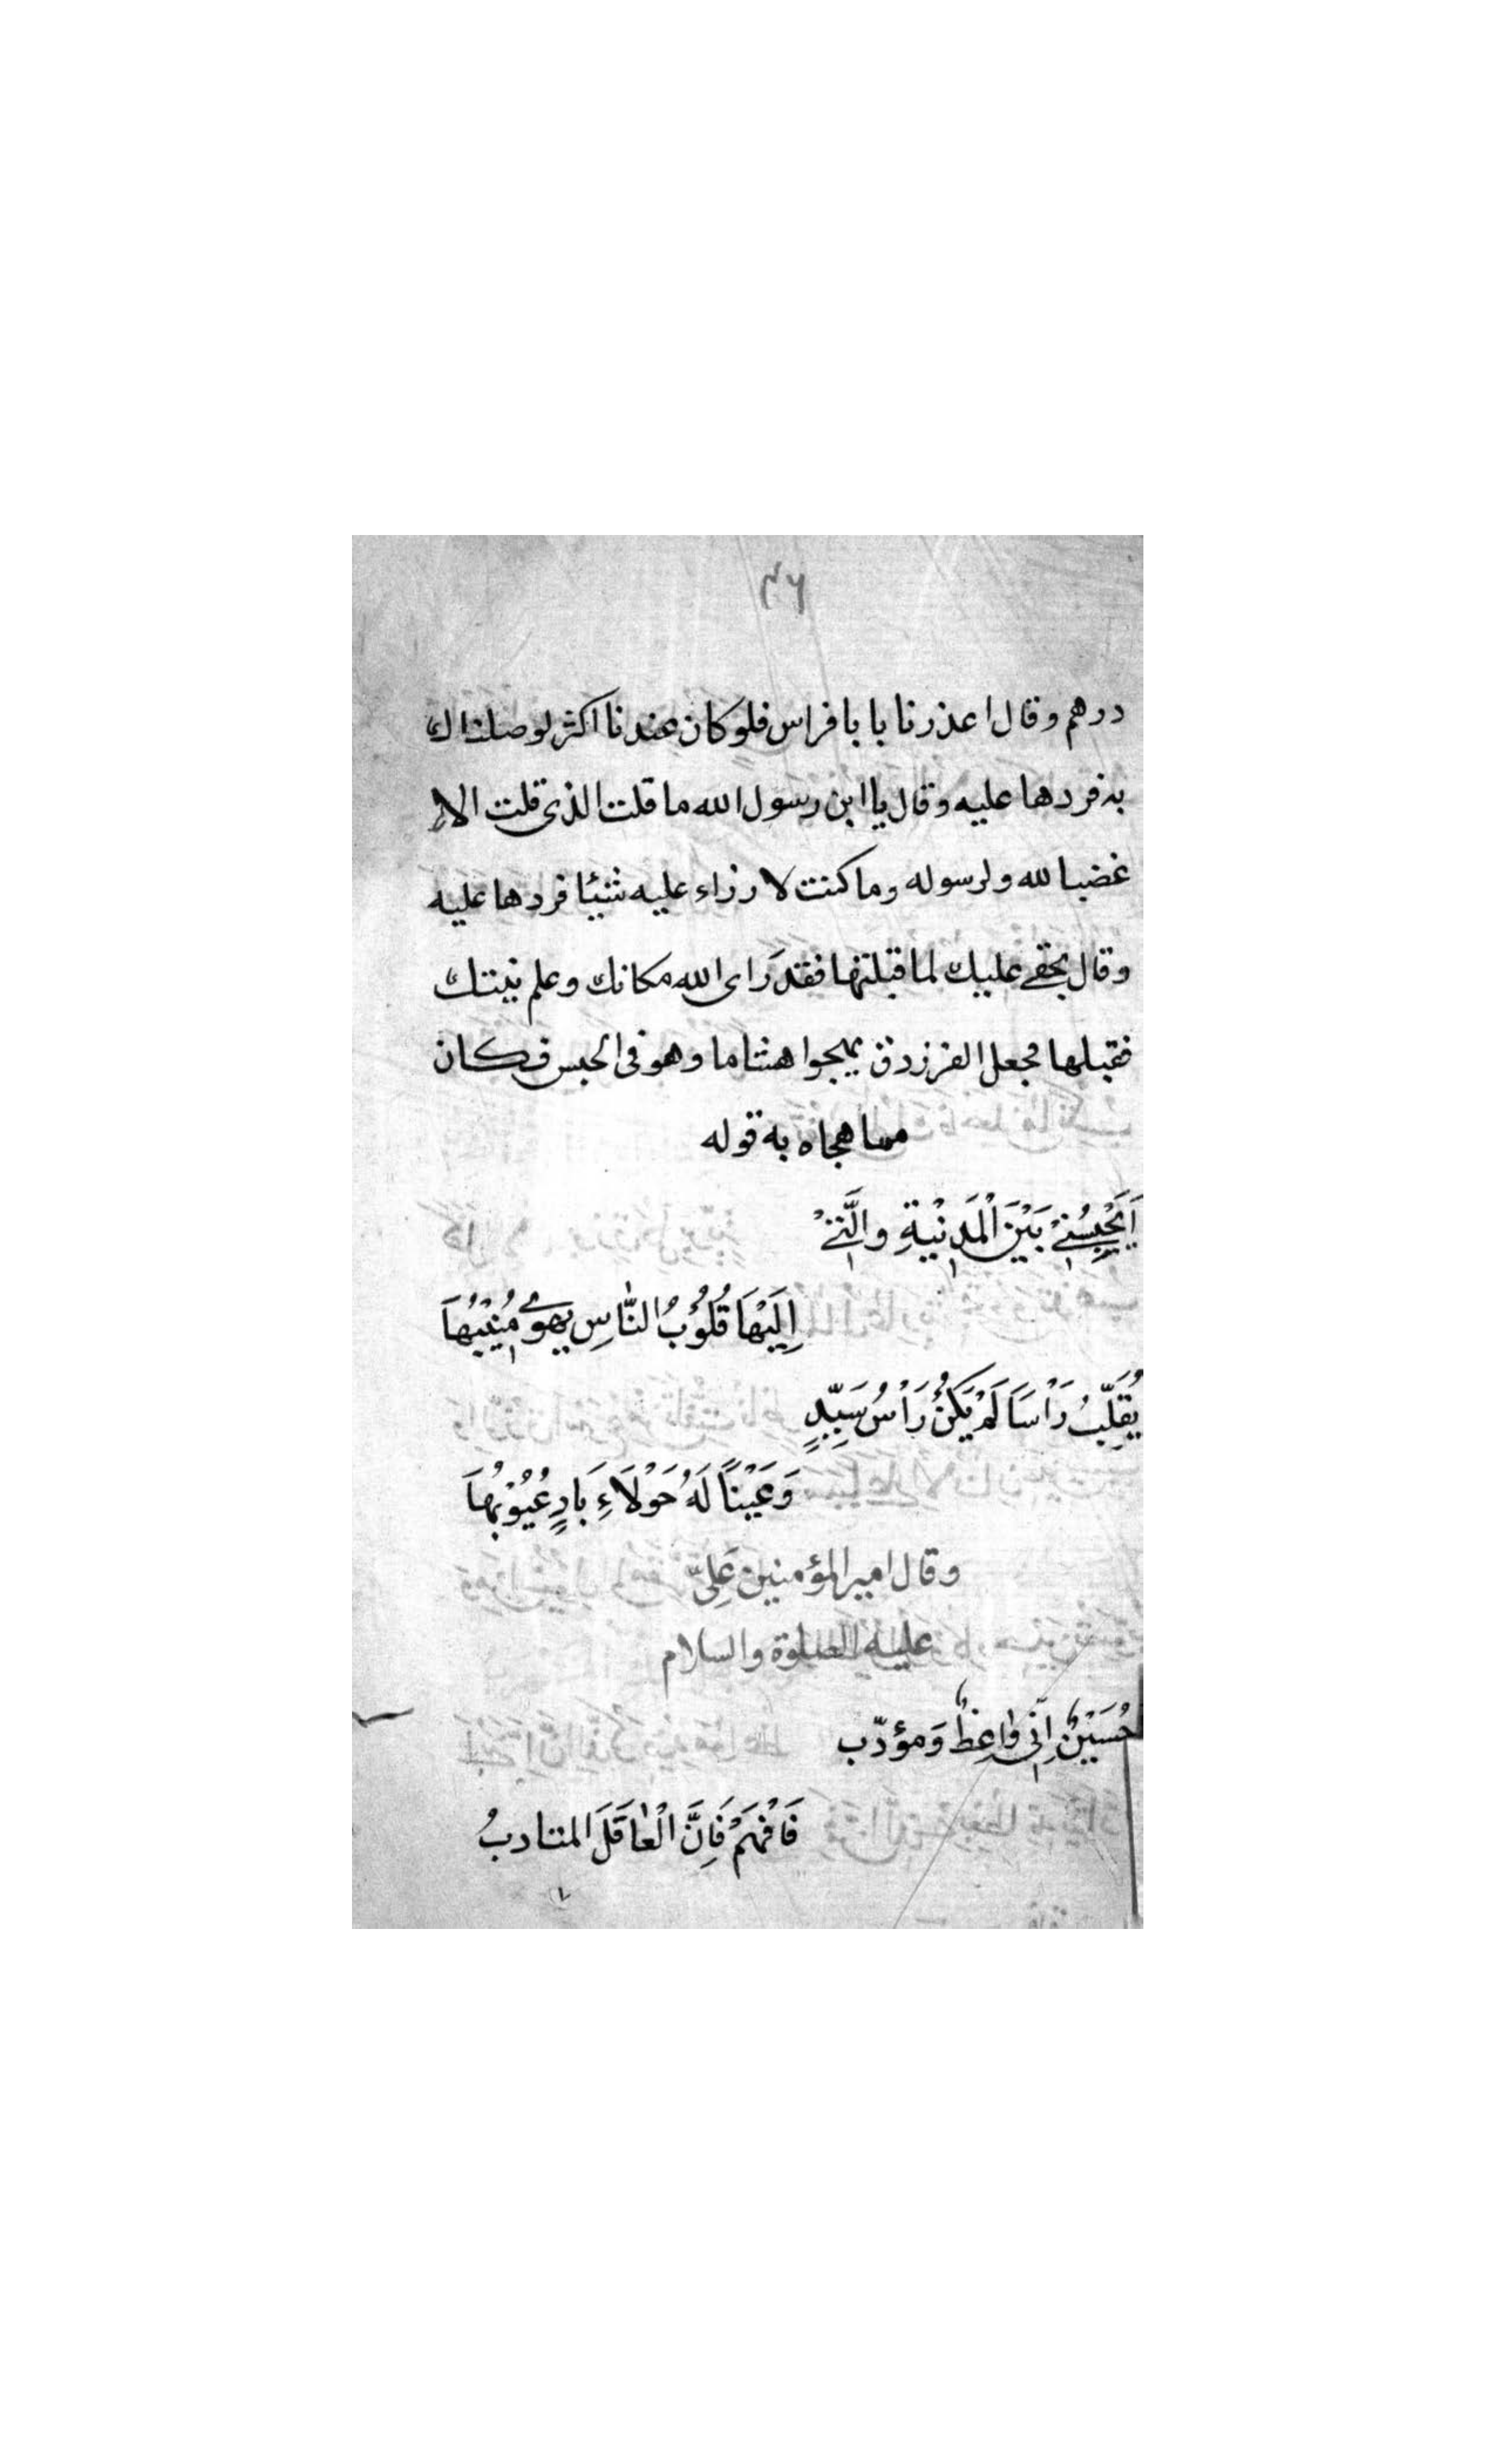 درهم وقال اعذرنا يا با فراس فلو كان عندنا اكثر لوصلناك
به فردها عليه وقال يا ابن رسول الله ما قلت الذى قلت الا
غضبا لله ولرسوله وما كنت لا رزاء عليه شيئا فردها عليه
وقال بحقى عليك لما قبلتها فقد راى الله مكانك وعلم نيتك
فقبلها فجعل الفرزدق يهجوا هشاما وهو فى الحبس فكان
مما هجاه به قوله
اَيَحْبِسُنِيْ بَيْنَ الْمَدِيْنَةِ وَالَّتِيْ
اِلَيْهَا قُلُوْبُ النَّاسِ يهوى مُنِيْبُهَا
يُقَلِّبُ رَاْسًا لَمْ يَكُنْ رَاْسُ سَيِّدٍ
وَعَيْنًا لَهُ حَوْلَاءِ بَادٍ عُيُوْبُهَا
وقال امير المؤمنين عَلِىّ
عليه الصلوة والسلام
حُسَيْنُ اِنّى وَاعِظٌ وَمؤدّب
فَافْهَمْ فَاِنَّ الْعَاقَلَ المتادبُ